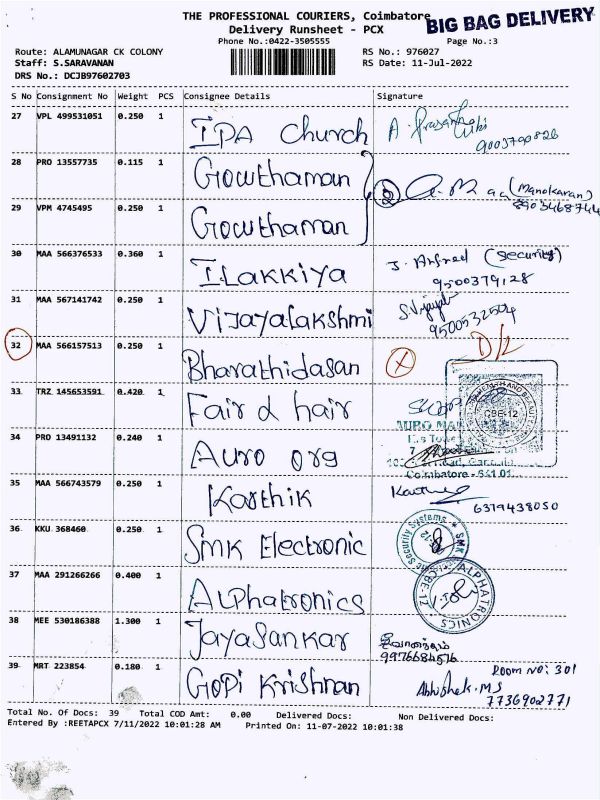 THE PROFESSIONAL COURIERS, Coimbatore
BIG BAG DELIVERY
Delivery Runsheet - PCX
Phone No.:0422-3505555
Page No.:3
Route: ALAMUNAGAR CK COLONY
RS No.: 976027
Staff: S.SARAVANAN
RS Date: 11-Jul-2022
DRS No.: DCJB97602703
S No Consignment No Weight PCS Consignee Details Signature
27 VPL 499531051 0.250 1 IPA Church A.
28 PRO 13557735 0.115 1 Gowthaman
(Manokaran)
8903468744
29 VPM 4745495 0.250 1 Gowthaman
30 MAA 566376533 0.360 1 ILakkiya J. Alfred (Security)
9500379128
31 MAA 567141742 0.250 1 VijayaLakshmi
9500532504
32 MAA 566157513 0.250 1 Bharathidasan X D/L
33 TRZ 145653591 0.420 1 Fair & hair
CBE-12
34 PRO 13491132 0.240 1 Auro org
Coimbatore - 641 01
35 MAA 566743579 0.250 1 Karthik
6379438050
36 KKU 368460 0.250 1 SMK Electronic
Security Systems * SMK
37 MAA 291266266 0.400 1 ALphatronics
ALPHATRONICS
CBE-12
38 MEE 530186388 1.300 1 Jayasankar
39 MRT 223854 0.180 1 Gopi Krishnan
Room No: 301
Abhishek.MS
7736902771
Total No. Of Docs: 39 Total COD Amt: 0.00 Delivered Docs: Non Delivered Docs:
Entered By :REETAPCX 7/11/2022 10:01:28 AM Printed On: 11-07-2022 10:01:38